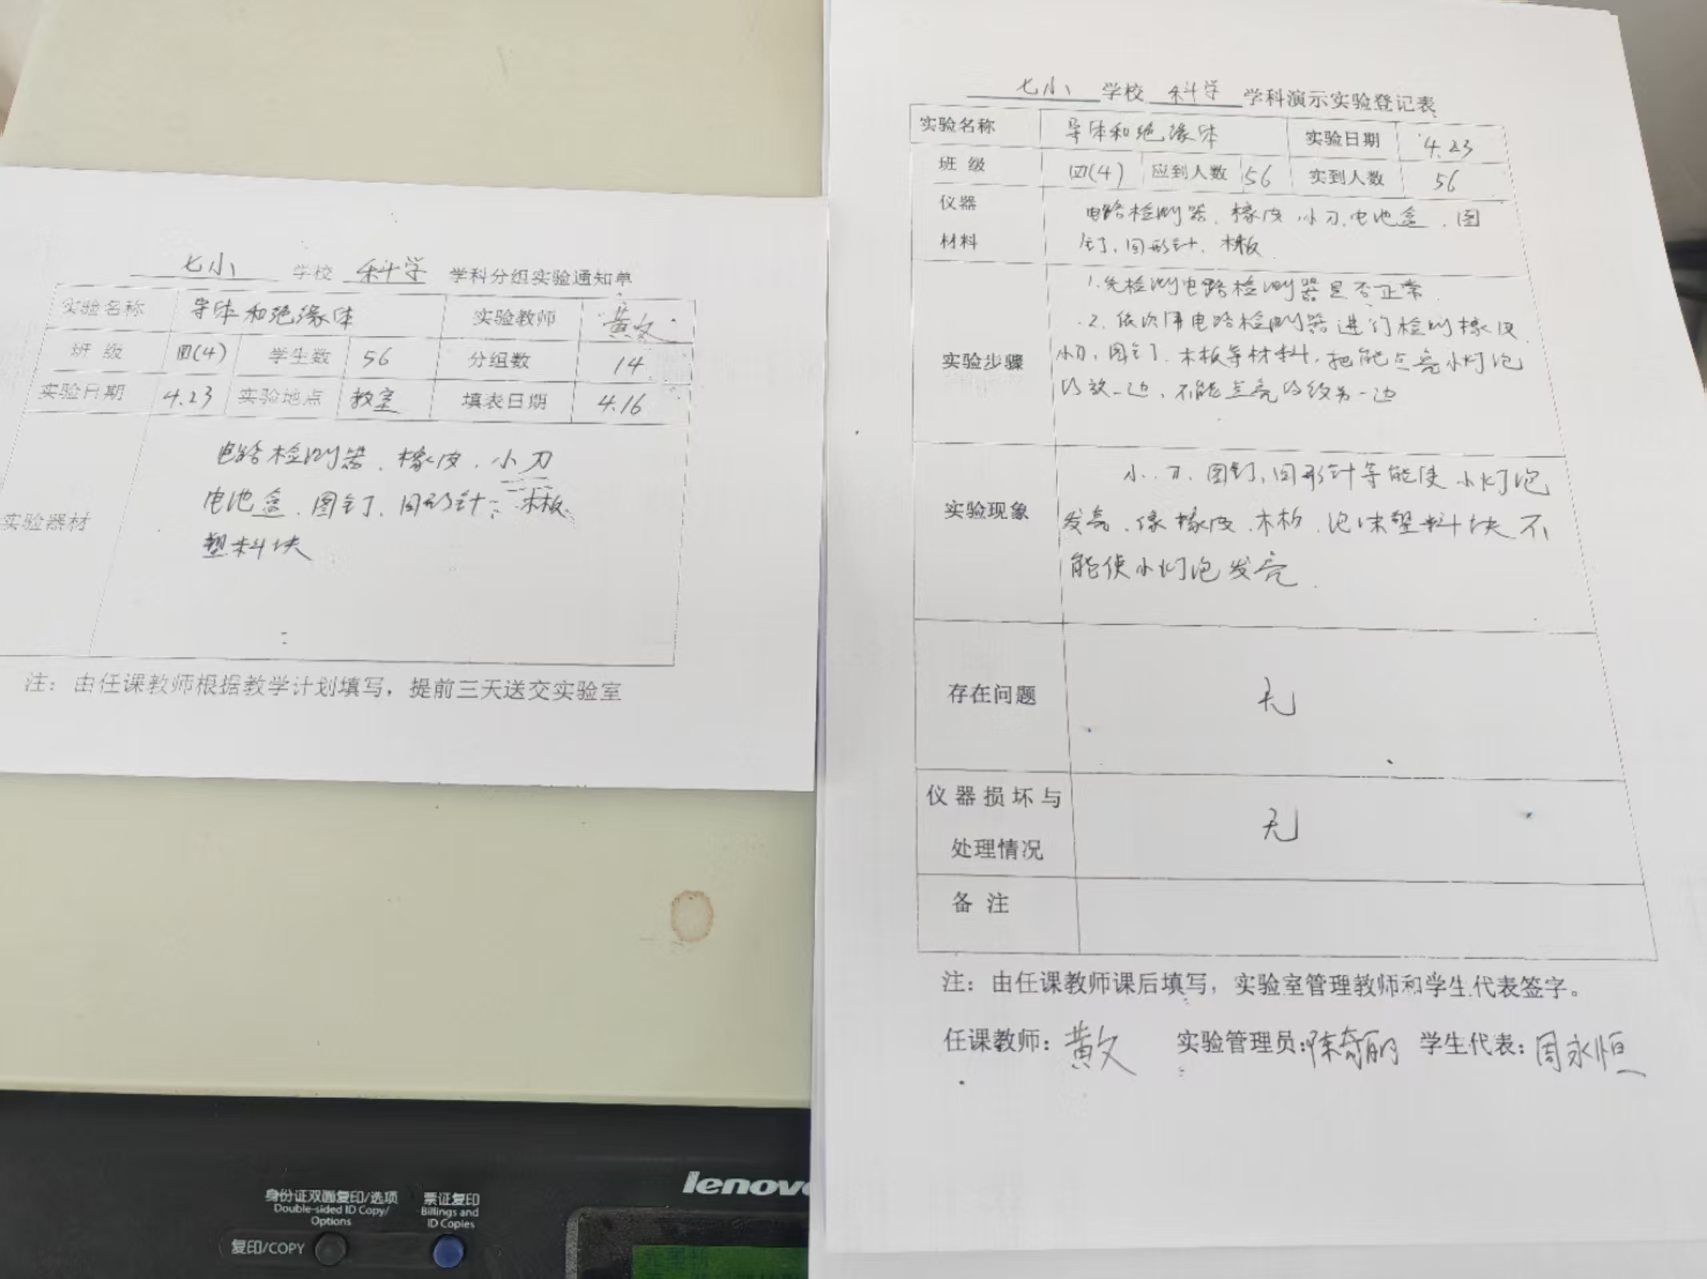 七小 学校 科学 学科分组实验通知单
实验名称 导体和绝缘体 实验教师 黄文
班 级 四(4) 学生数 56 分组数 14
实验日期 4.23 实验地点 教室 填表日期 4.16
电路检测器、橡皮、小刀
电池盒、图钉、回形针、木板、
实验器材
塑料块
注：由任课教师根据教学计划填写，提前三天送交实验室
七小 学校 科学 学科演示实验登记表
实验名称 导体和绝缘体 实验日期 4.23
班 级 四(4) 应到人数 56 实到人数 56
仪器 电路检测器、橡皮、小刀、电池盒、图
材料 钉、回形针、木板
1.先检测电路检测器是否正常
2.依次用电路检测器进行检测橡皮
实验步骤 小刀、图钉、木板等材料，把能点亮小灯泡
的放一边、不能点亮的放另一边
小刀、图钉、回形针等能使小灯泡
实验现象 发亮、像橡皮、木板、泡沫塑料块不
能使小灯泡发亮
存在问题 无
仪器损坏与
无
处理情况
备 注
注：由任课教师课后填写，实验室管理教师和学生代表签字。
任课教师：黄文 实验管理员：陈奇丽 学生代表：周永恒
lenovo
身份证双面复印/选项 票证复印
Double-sided ID Copy/ Billings and
Options ID Copies
复印/COPY